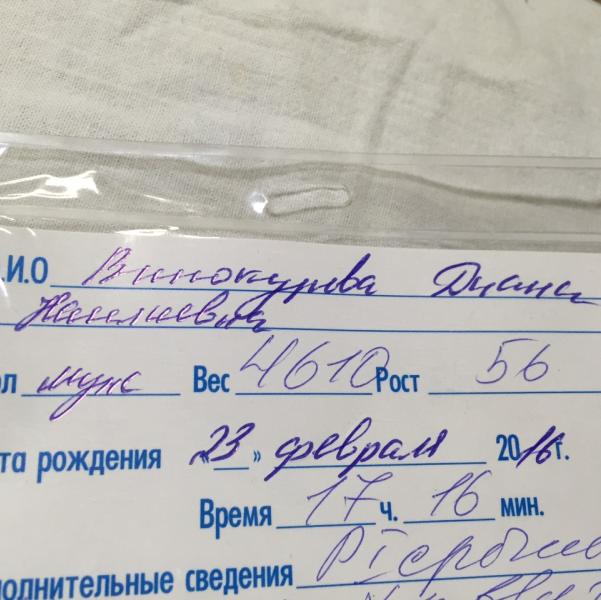 .И.О Винокурова Диана
Наилевна
ол муж Вес 4610 Рост 56
та рождения «23» февраля 2016г.
Время 17 ч. 16 мин.
полнительные сведения РI срочные